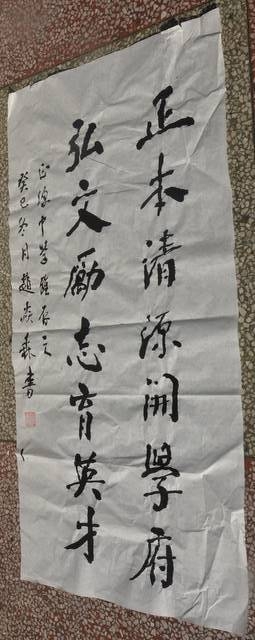 正本清源開學府
弘文勵志育英才
正源中學雅存之
癸巳冬月趙焱森書